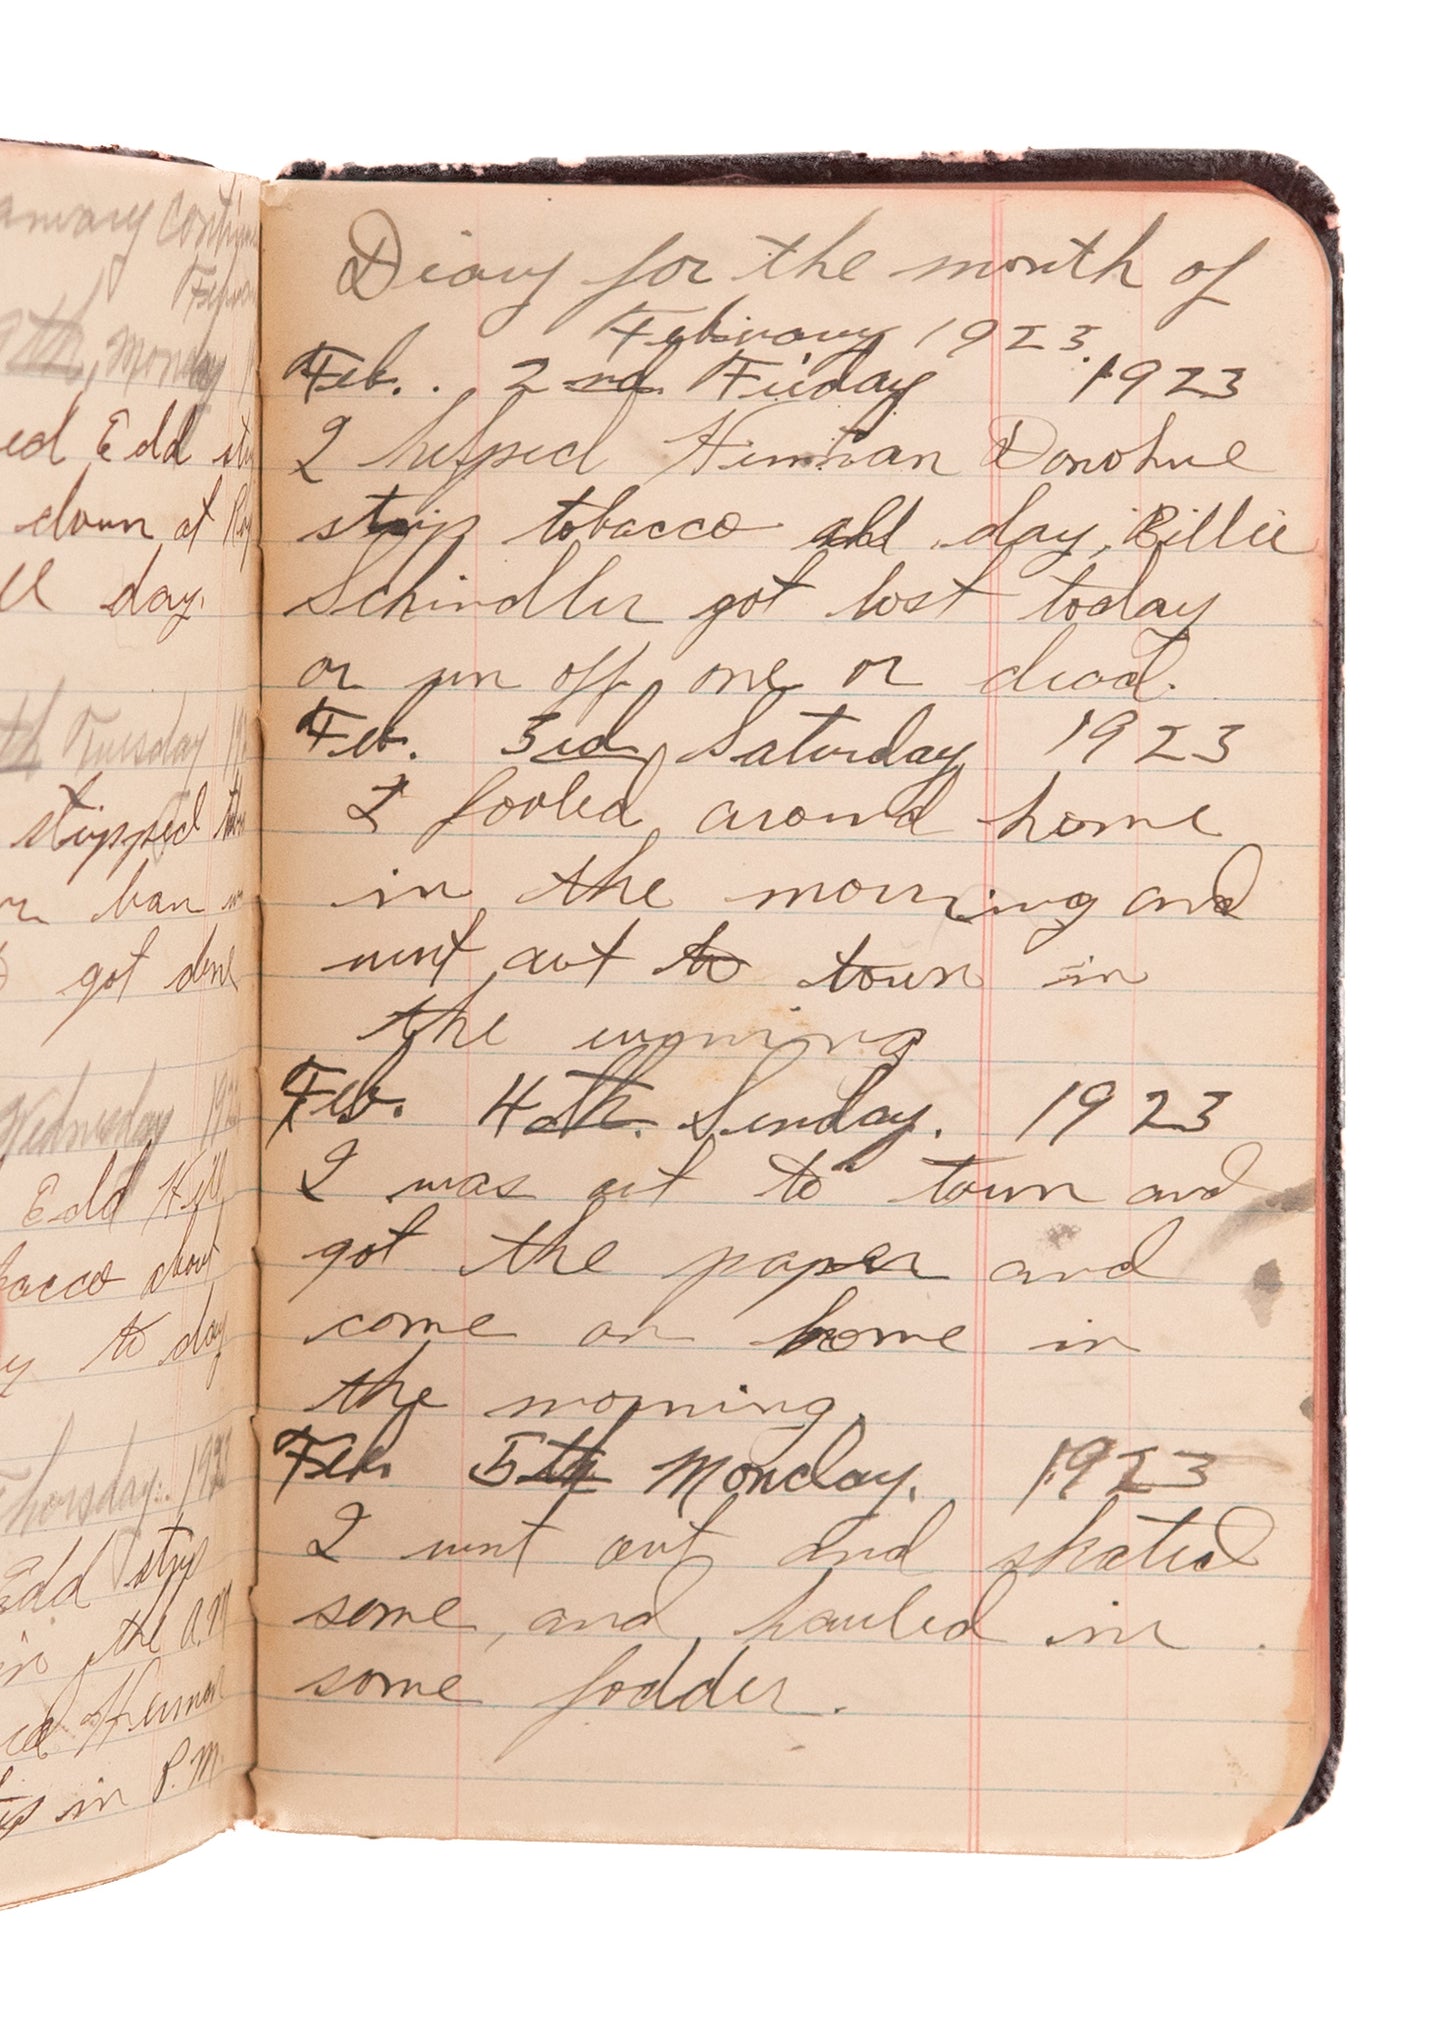 January Contin
9th, Monday
ed Edd
down at
ll day.
th Tuesday
stripped
got done
Wednesday
Edd Hill
bacco about
to day
Thursday. 1923
Edd strip
in the A.M
Herman
in P.M.
Diary for the month of
February 1923.
Feb. . 2nd Friday 1923
I helped Herman Donohue
strip tobacco all day, Billie
Schindler got lost today
or run off, one or dead.
Feb. 3rd, Saturday 1923
I fooled around home
in the morning and
went out to town in
the evening
Feb. 4th. Sunday. 1923
I was out to town and
got the paper and
come on home in
the morning.
Feb. 5th Monday. 1923
I went out and skated
some, and hauled in
some fodder.